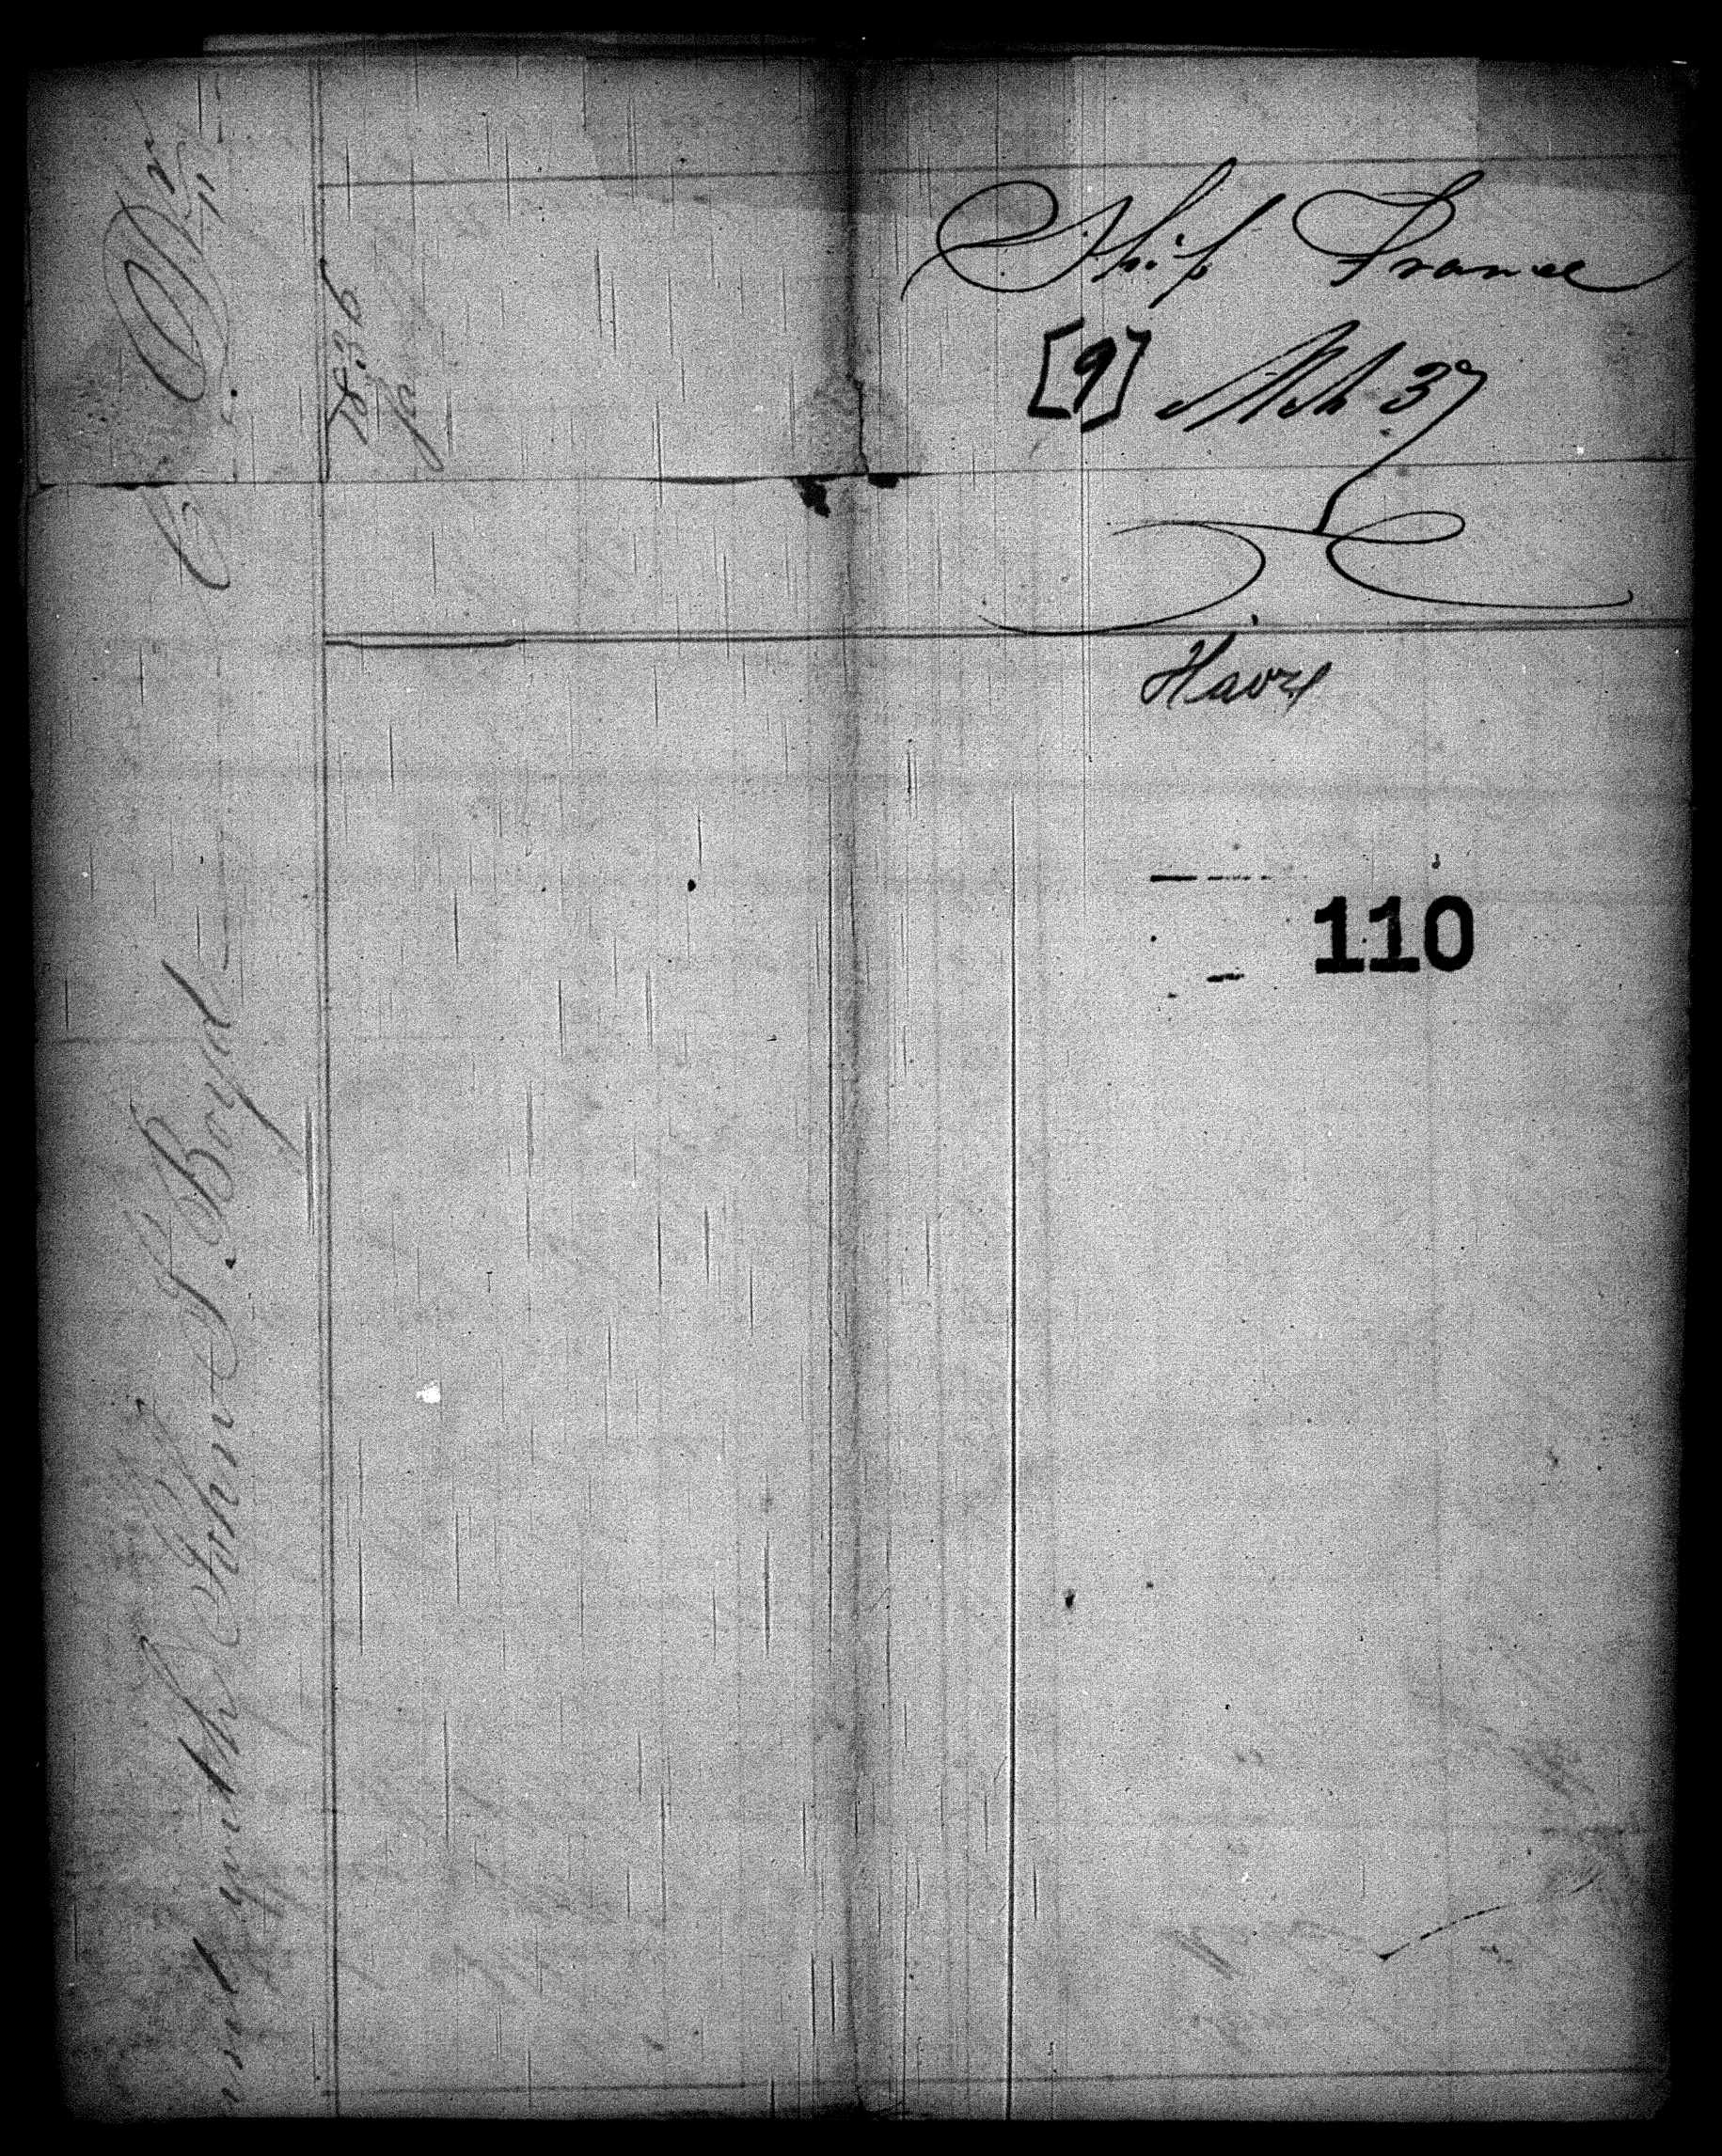 Ship France
[9] Mch 37
Havre
110
Dr
1836
with John S. Boyd